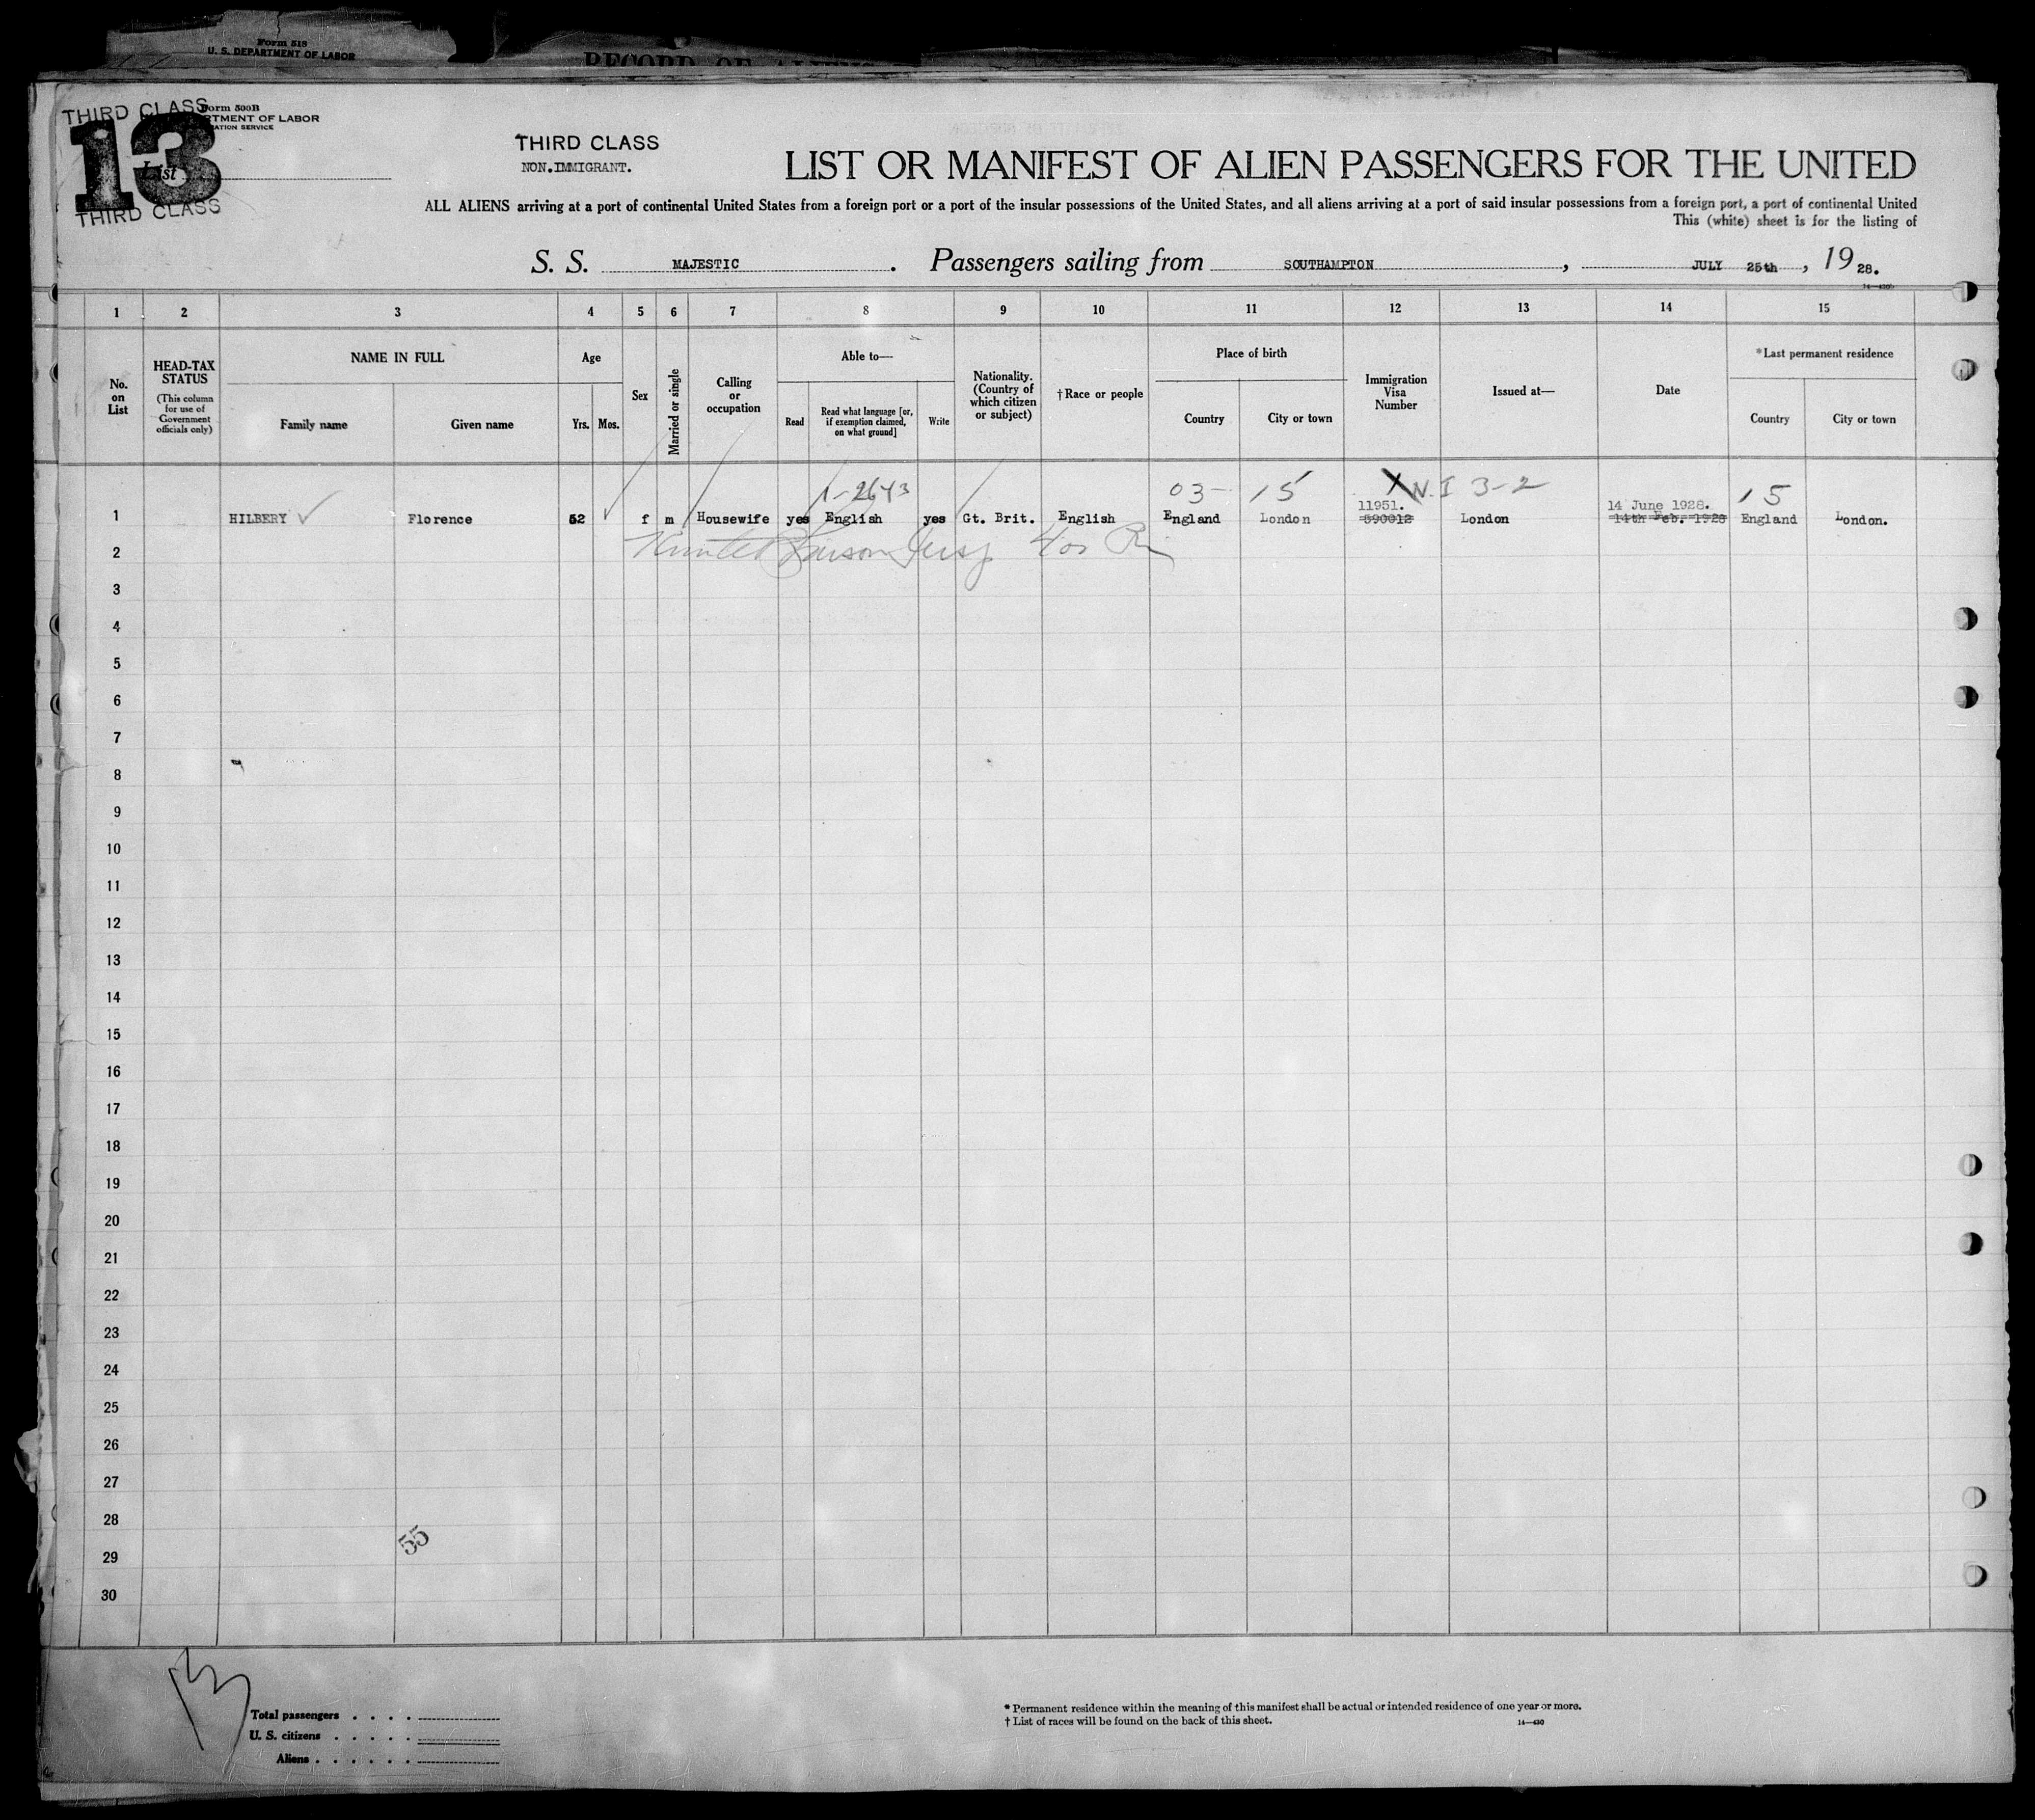 Form 518
U. S. DEPARTMENT OF LABOR
RECORD OF ALIENS
THIRD CLASS
Form 500B
RTMENT OF LABOR
RATION SERVICE
13
List
THIRD CLASS
THIRD CLASS
NON.IMMIGRANT.
LIST OR MANIFEST OF ALIEN PASSENGERS FOR THE UNITED
ALL ALIENS arriving at a port of continental United States from a foreign port or a port of the insular possessions of the United States, and all aliens arriving at a port of said insular possessions from a foreign port, a port of continental United
This (white) sheet is for the listing of
S. S. MAJESTIC . Passengers sailing from SOUTHAMPTON , JULY 25th , 19 28.
14—430b
1 2 3 4 5 6 7 8 9 10 11 12 13 14 15
No. on List
HEAD-TAX STATUS (This column for use of Government officials only)
NAME IN FULL
Family name Given name
Age
Yrs. Mos.
Sex
Married or single
Calling or occupation
Able to—
Read
Read what language [or, if exemption claimed, on what ground]
Write
Nationality. (Country of which citizen or subject)
†Race or people
Place of birth
Country City or town
Immigration Visa Number
Issued at—
Date
*Last permanent residence
Country City or town
1-2643 03- 15 X N.I 3-2 15
11951. 14 June 1928.
1 HILBERY ✓ Florence 52 ✓ f m Housewife yes English yes Gt. Brit. English England London 590012 London 14th Feb. 1928 England London.
2
3
4
5
6
7
8
9
10
11
12
13
14
15
16
17
18
19
20
21
22
23
24
25
26
27
28
29
30
55
13
Total passengers . . . .
U. S. citizens . . . . .
Aliens . . . . . .
* Permanent residence within the meaning of this manifest shall be actual or intended residence of one year or more.
† List of races will be found on the back of this sheet.
14—430